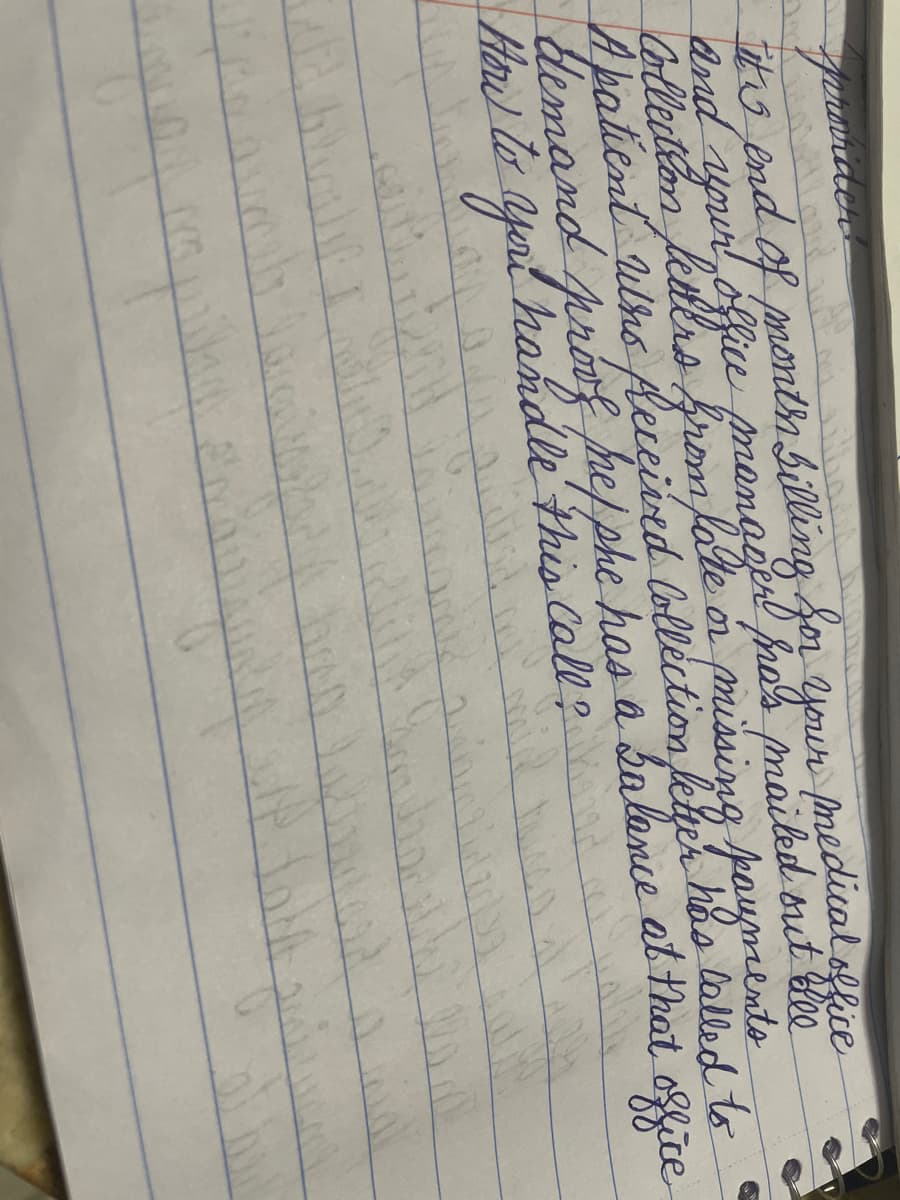 provider!
it's end of month billing for your medical office
and your office manager has mailed out all
collection letters from late or missing payments
A patient who received collection letter has called to
demand proof he/she has a balance at that office
How to you handle this call?